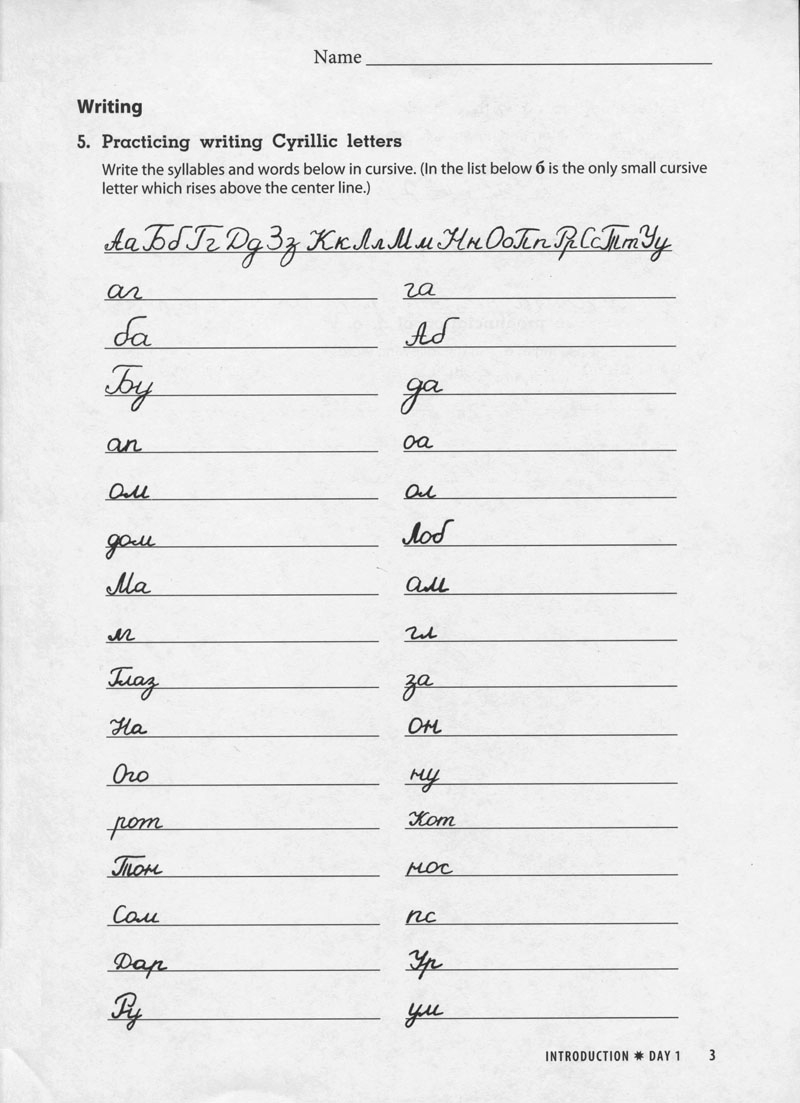 Name
Writing
5. Practicing writing Cyrillic letters
Write the syllables and words below in cursive. (In the list below б is the only small cursive
letter which rises above the center line.)
Аа Бб Гг Дд Зз Кк Лл Мм Нн Оо Пп Рр Сс Тт Уу
аг га
ба Аб
Бу да
ап оа
ом ол
дом Лоб
Ма ам
лг гл
Глаз за
На Он
Ого ну
рот Кот
Тон нос
Сам пс
Дар Ур
Ру ум
INTRODUCTION ✷ DAY 1 3